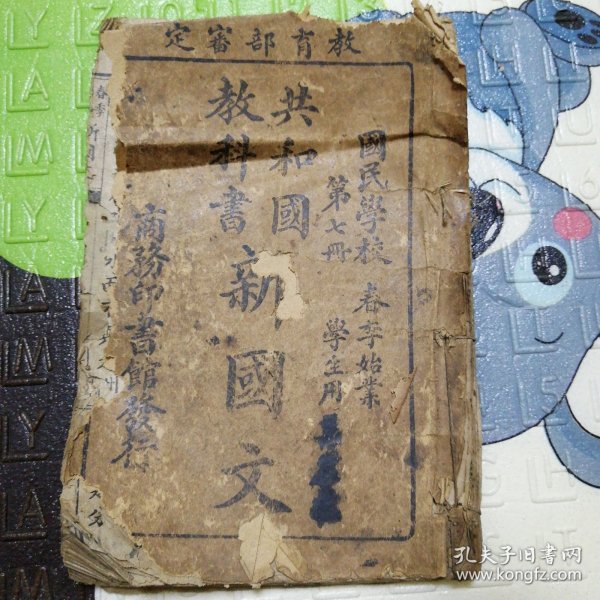 教育部審定
國民學校 春季始業
第七冊 學生用
共和國
教科書 新國文
商務印書館發行
孔夫子旧书网
www.kongfz.com